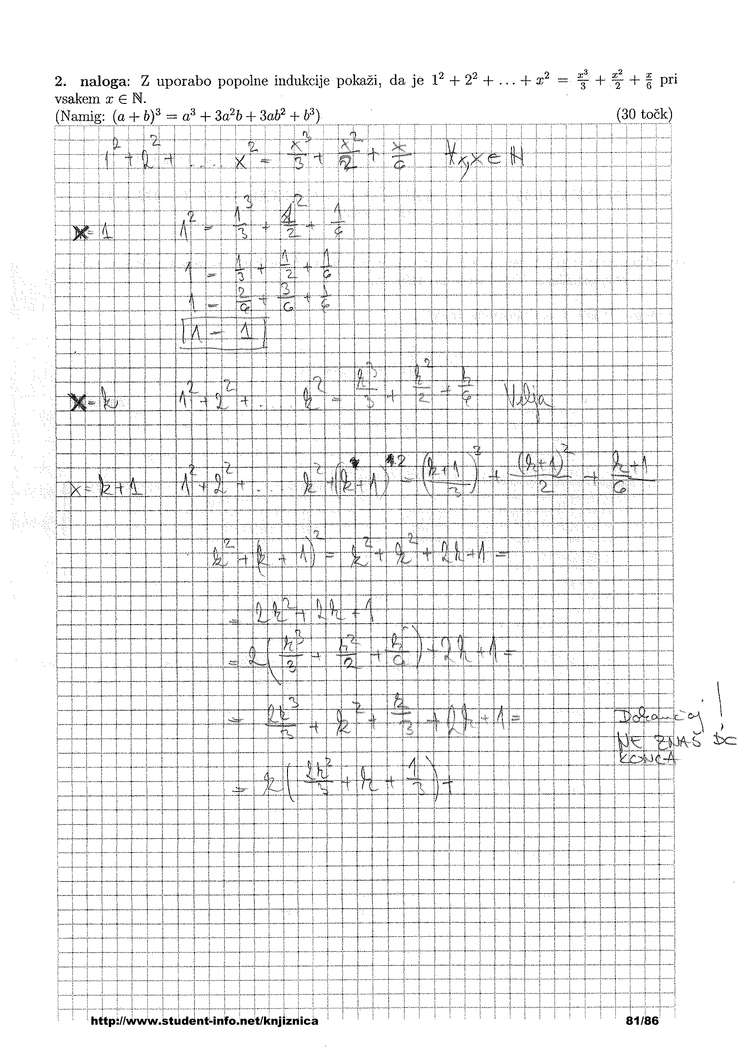 2. naloga: Z uporabo popolne indukcije pokaži, da je 1² + 2² + … + x² = x³/3 + x²/2 + x/6 pri
vsakem x ∈ ℕ.
(Namig: (a + b)³ = a³ + 3a²b + 3ab² + b³) (30 točk)
1² + 2² + .... x² = x³/3 + x²/2 + x/6 ∀x, x ∈ ℕ
x = 1 1² = 1³/3 + 1²/2 + 1/6
1 = 1/3 + 1/2 + 1/6
1 = 2/6 + 3/6 + 1/6
1 = 1
x = k 1² + 2² + ... k² = k³/3 + k²/2 + k/6 Velja
x = k+1 1² + 2² + .... k² + (k+1)² = (k+1/3)³ + (k+1)²/2 + k+1/6
k² + (k + 1)² = k² + k² + 2k + 1 =
= 2k² + 2k + 1
= 2(k³/3 + k²/2 + k/6) + 2k + 1 =
= 2k³/3 + k² + k/3 + 2k + 1 =
= k(2k²/3 + k + 1/3) +
Dokončaj!
NE ZNAŠ DO
KONCA
http://www.student-info.net/knjiznica 81/86